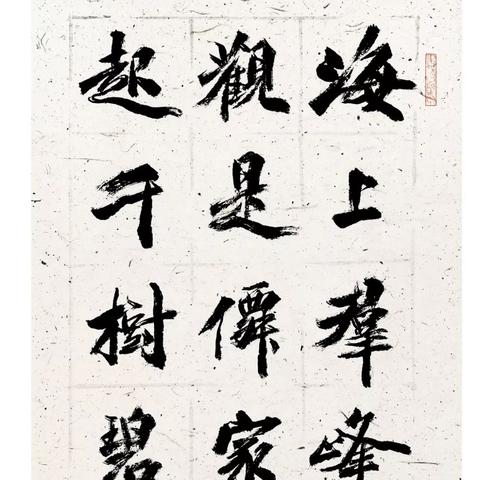 海上羣峰
觀是僊家
起千樹碧